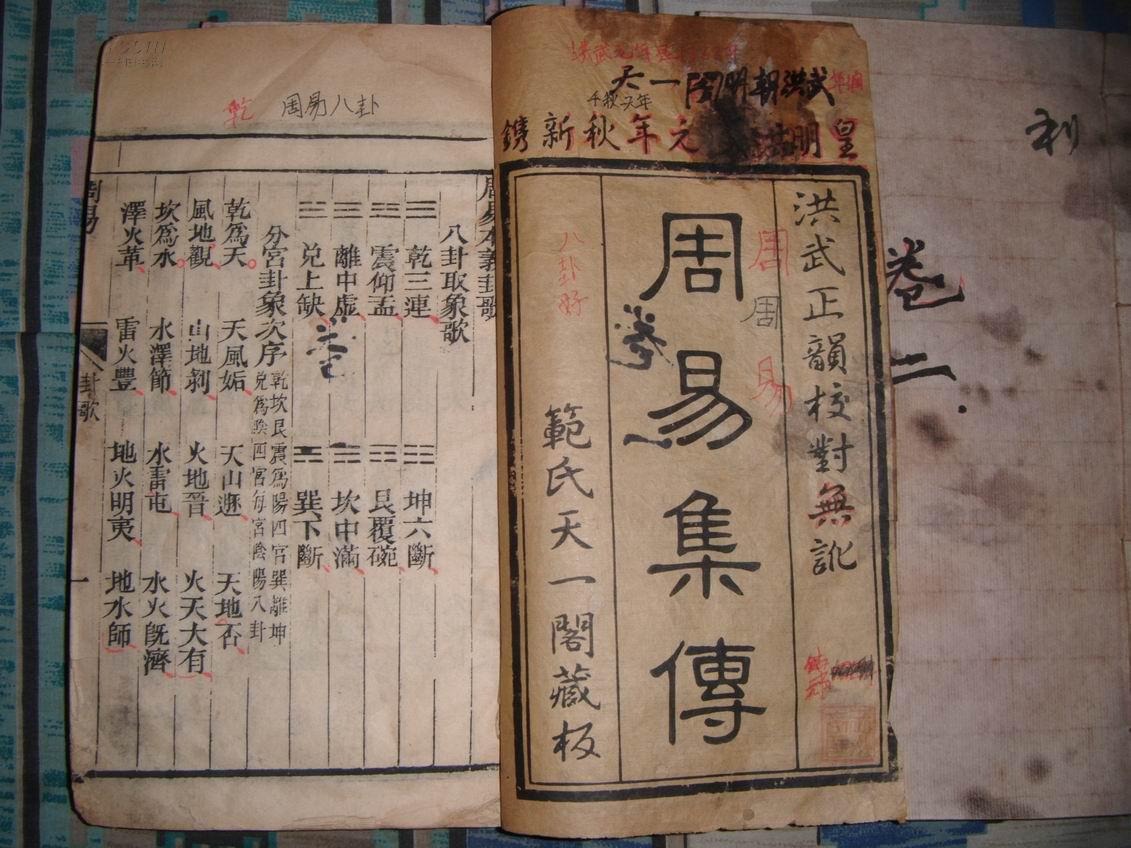 利
卷
二
武洪朝明閣一天
千秋天年
皇明洪武元年秋新鐫
洪武正韻校對無訛
周易
周
周易集傳
卷
一
八卦好
範氏天一閣藏板
乾
周易八卦
周易本義卦歌
八卦取象歌
☰乾三連 ☷坤六斷
☳震仰盂 ☶艮覆碗
☲離中虛 ☵坎中滿
☱兌上缺 ☴巽下斷
卷
一
分宮卦象次序 乾坎艮震為陽四宮巽離坤
兌為陰四宮每宮陰陽八卦
乾爲天 天風姤 天山遯 天地否
風地觀 山地剥 火地晉 火天大有
坎爲水 水澤節 水雷屯 水火旣濟
澤火革 雷火豐 地火明夷 地水師
周易
卦歌
一